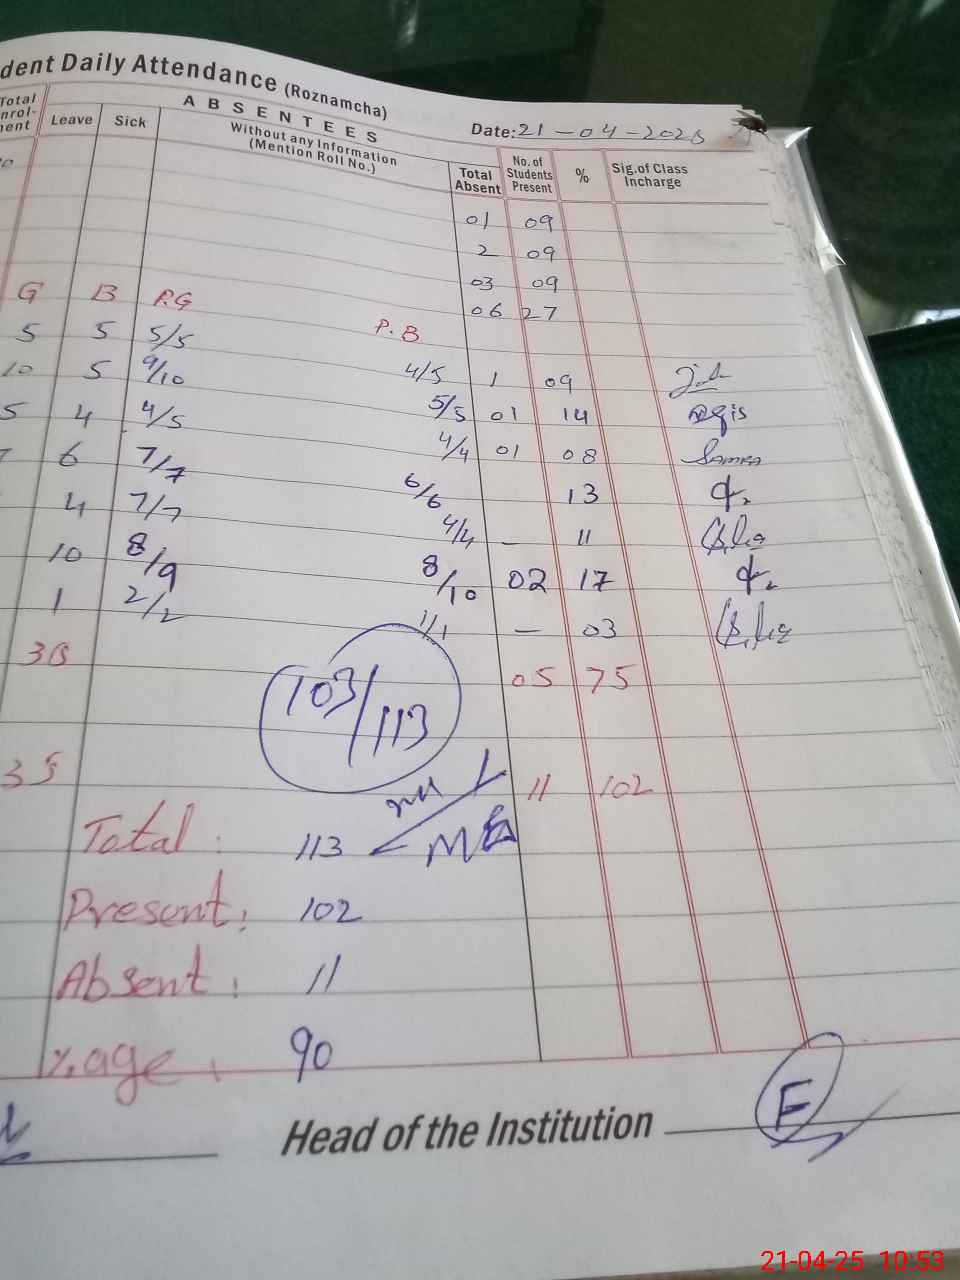 dent Daily Attendance (Roznamcha)
Date: 21-04-2025
Total Enrol- ment Leave Sick ABSENTEES
Without any Information (Mention Roll No.)
Total Absent No. of Students Present % Sig. of Class Incharge
01 09
2 09
03 09
06 27
G B P.G P.B
5 5 5/5 4/5 1 09
10 5 9/10 5/5 01 14 Aqis
5 4 4/5 4/4 01 08 Samra
7 6 7/7 6/6 13
4 7/7 4/4 - 11
10 8/9 8/10 02 17
1 2/2 1/1 - 03
05 75
103/113
11 102
Total: 113
Present: 102
Absent: 11
%age: 90
F
Head of the Institution
21-04-25 10:53